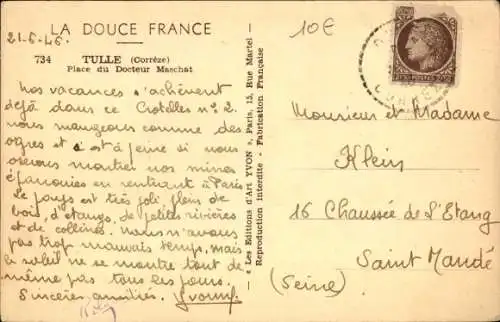 LA DOUCE FRANCE
21-6-46.
10€
734 TULLE (Corrèze)
Place du Docteur Maschat
Nos vacances s'achèvent
déjà dans ce Crotelles n° 2.
nous mangeons comme des
ogres et c'est à peine si nous
oserons montrer nos mines
épanouies en rentrant à Paris
Le pays est très joli, plein de
bois, d'étangs, de petites rivières
et de collines. nous n'avons
pas trop mauvais temps, mais
le soleil ne se montre tout de
même pas tous les jours.
Sincères amitiés. Yvonne
« Les Editions d'Art YVON », Paris, 15, Rue Martel —
Reproduction interdite - Fabrication Française
Monsieur et Madame
Klein
16 Chaussée de l'Etang
Saint Mandé
(Seine)